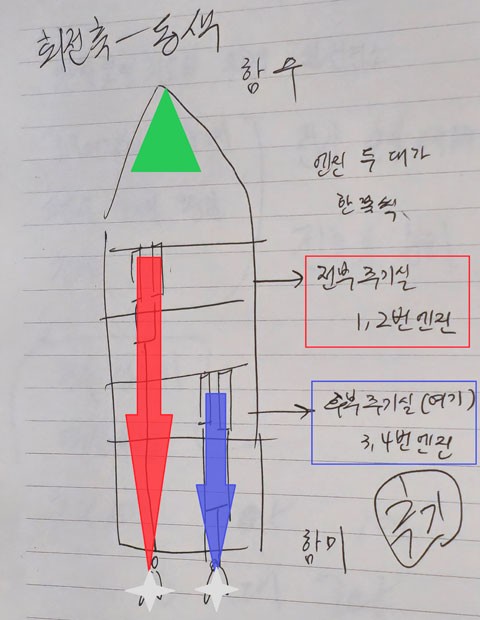 회전축 - 동색
함수
엔진 두 대가
한 쪽씩
전부 주기실
1, 2번 엔진
후부 주기실 (여기)
3, 4번 엔진
함미